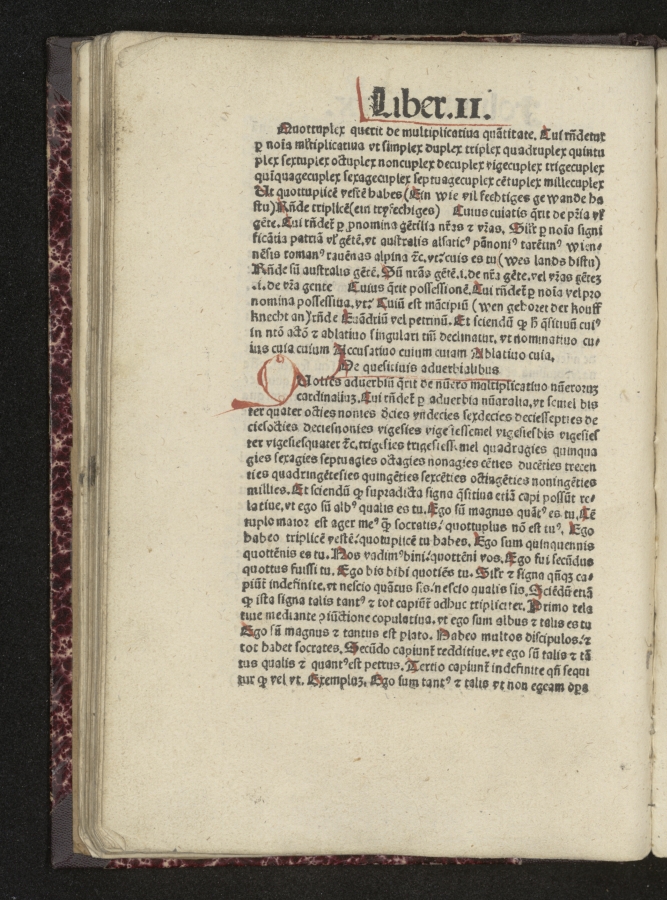 Liber.II.
Quotuplex querit de multiplicatiua quātitate. Cui rn̄detur
ꝑ noīa mltiplicatiua vt simplex duplex triplex quadruplex quintu
plex sextuplex octuplex noncuplex decuplex vigecuplex trigecuplex
quīquagecuplex sexagecuplex septuagecuplex cētuplex millecuplex
Ut quottuplicē vestē habes (Ein wie vil fechtiges gewande ha
stu) Rn̄de triplicē(ein tryfechiges) Cuius cuiatis q̄rit de pr̄ia vl̓
gēte. Cui rn̄det̄ ꝑ ꝓnomina gētilia nr̄as ⁊ vr̄as. Sil̓r ꝑ noīa signi
ficātia patriā vl̓ gētē. vt australis alsaticꝰ pānoniꝰ tarētinꝰ wien⸗
nēsis romanꝰ rauēnas alpina ⁊c. vt: cuis es tu (wes lands bistu)
Rn̄de sū australis gētē. Sū nr̄āa gētē .i. de nr̄a gēte. vel vr̄as gēteꝫ
.i. de vr̄a gente Cuius q̄rit possessionē. Cui rn̄det̄ ꝑ noīa vel pro
nomina possessiua. vt: Cuiū est mācipiū (wen gehoret der houff
knecht an) rn̄de Euādriū vel petrinū. Et sciendū ꝙ h̄ q̄situū cuiꝰ
in ntō actō ⁊ ablatiuo singulari tm̄ declinatur. vt nominatiuo cu⸗
ius cuia cuium Accusatiuo cuium cuiam Ablatiuo cuia.
De quesitiuis aduerbialibus
Quoties aduerbiū q̄rit de nūero multiplicatiuo nūerorūꝫ
cardinaliūꝫ. Cui rn̄det̄ ꝑ aduerbia nūaralia. vt semel bis
ter quater octies nonies decies vndecies sexdecies deciessepties de
ciesocties deciesnonies vigesies vigesiessemel vigesiesbis vigesies
ter vigesiesquater ⁊c. trigesies trigesiessemel quadragies quinqua
gies sexagies septuagies octagies nonagies cēties ducēties trecen
ties quadringētesies quingēties sexcēties octingēties noningēties
millies. Et sciendū ꝙ supradicta signa q̄sitiua etiā capi possūt re⸗
latiue. vt ego sū albꝰ qualis es tu. Ego sū magnus quātꝰ es tu. Cē
tuplo maior est ager meꝰ ꝙ socratis: quottuplus nō est tuꝰ. Ego
habeo triplicē vestē: quotuplicē tu habes. Ego sum quinquennis
quottēnis es tu. Nos vadimꝰ bini: quottēni vos. Ego fui secūdus
quottus fuisti tu. Ego bis bibi quotiēs tu. Sil̓r ⁊ signa qn̄qꝫ ca⸗
piūt̄ indefinite. vt nescio quātus sis. nescio qualis sis. Sciēdū etiā
ꝙ ista signa talis tantꝰ ⁊ tot capiūt̄ adhuc tripliciter. Primo rela
tiue mediante ꝯiūctione copulatiua. vt ego sum albus ⁊ talis es tu
Ego sū magnus ⁊ tantus est plato. Habeo multos discipulos: ⁊
tot habet socrates. Secūdo capiunt̄ redditiue. vt ego sū talis ⁊ tā
tus qualis ⁊ quantꝰ est petrus. Tertio capiunt̄ indefinite qn̄ sequi
tur ꝙ vel vt. Exempluꝫ. Ego sum tantꝰ ⁊ talis vt non egeam